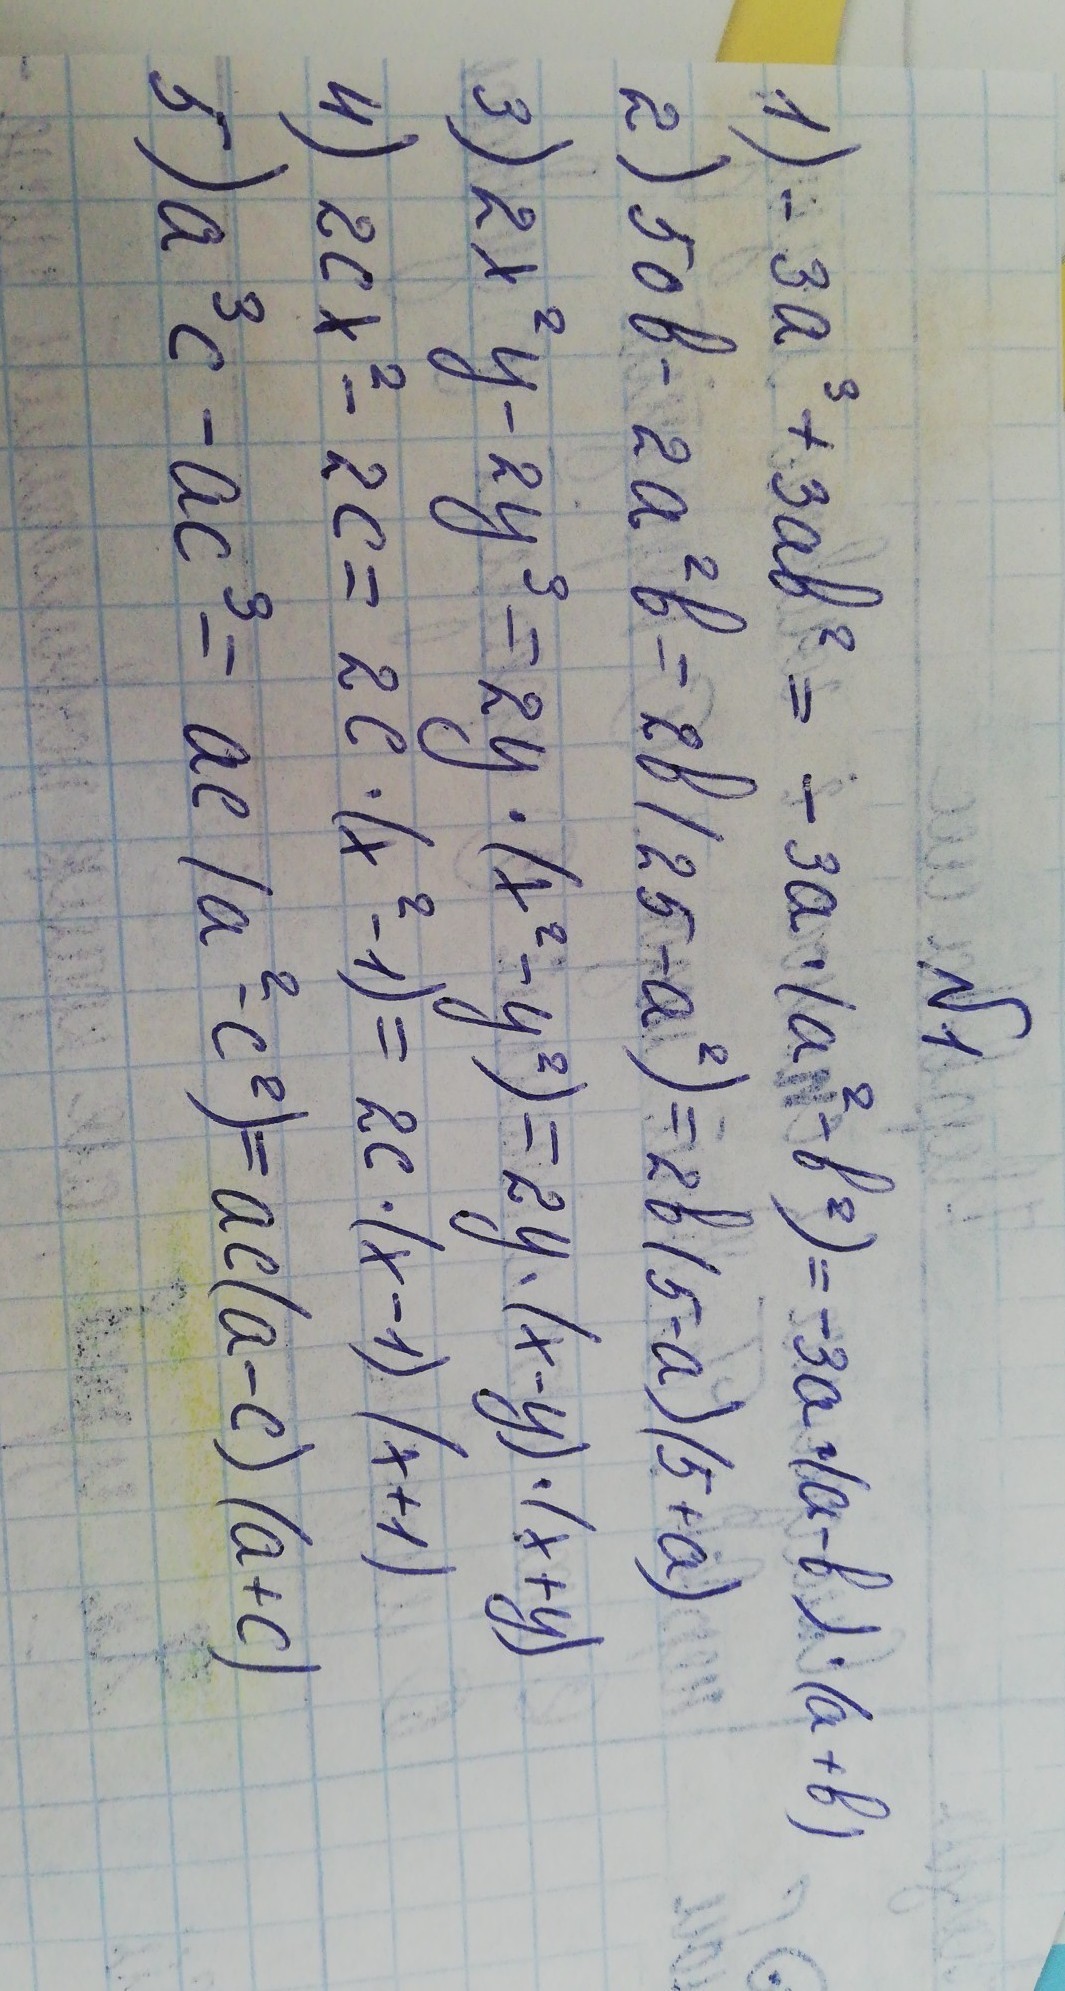 №1
1) -3a³+3ab² = -3a·(a²-b²)=-3a·(a-b)·(a+b)
2) 50b-2a²b=2b(25-a²)=2b(5-a)(5+a)
3) 2x²y-2y³=2y·(x²-y²)=2y·(x-y)·(x+y)
4) 2cx²-2c=2c·(x²-1)=2c·(x-1)(x+1)
5) a³c-ac³=ac(a²-c²)=ac(a-c)(a+c)